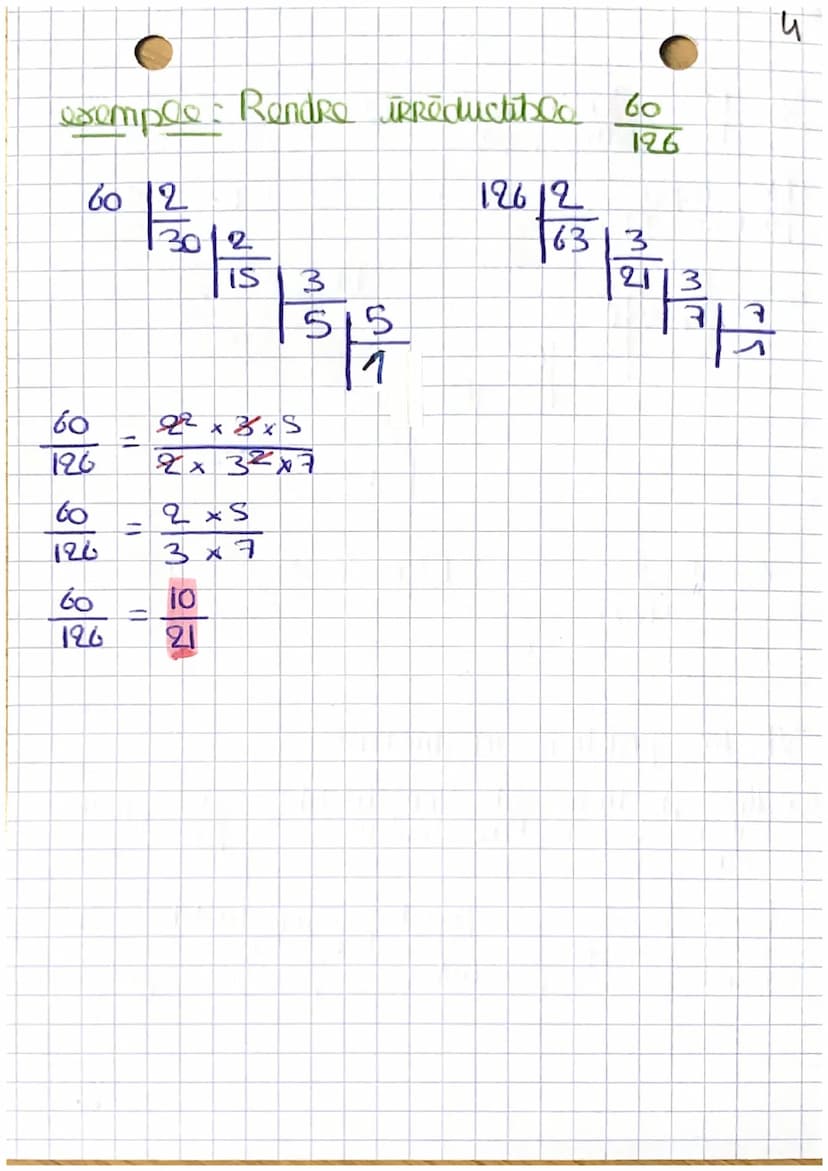 4
exemple : Rendre irréductible 60/126
60 | 2
30 | 2
15 | 3
5 | 5
1
126 | 2
63 | 3
21 | 3
7 | 7
1
60/126 = 2² × 3 × 5 / 2 × 3² × 7
60/126 = 2 × 5 / 3 × 7
60/126 = 10/21